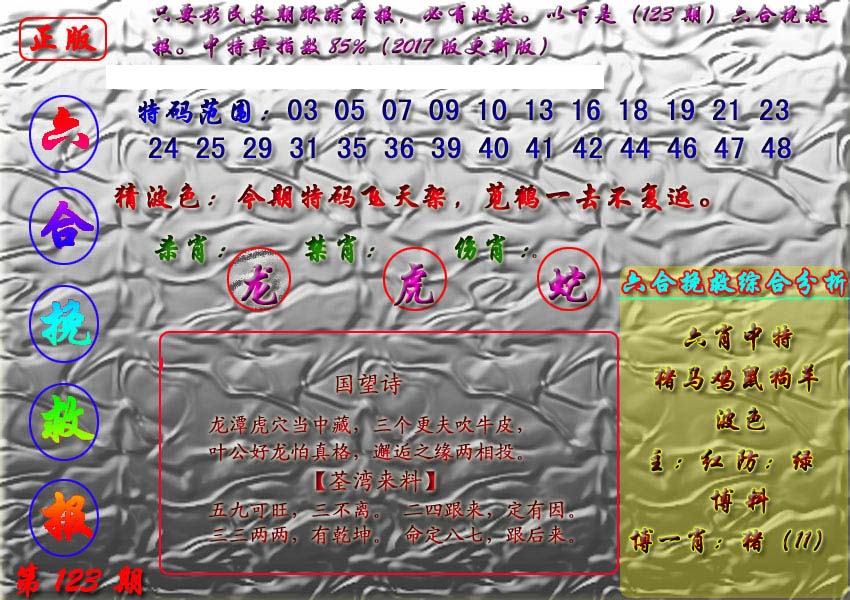 正版
只要彩民长期跟踪本报，必有收获。以下是（123期）六合挽救
报。中特率指数85%（2017版更新版）
六合挽救报
第123期
特码范围：03 05 07 09 10 13 16 18 19 21 23
24 25 29 31 35 36 39 40 41 42 44 46 47 48
猜波色：今期特码飞天架，苋鹤一去不复返。
杀肖：龙 禁肖：虎 伤肖：蛇。
国望诗
龙潭虎穴当中藏，三个更夫吹牛皮，
叶公好龙怕真格，邂逅之缘两相投。
【荃湾来料】
五九可旺，三不离。 二四跟来，定有因。
三三两两，有乾坤。 命定八七，跟后来。
六合挽救综合分析
六肖中特
猪马鸡鼠狗羊
波色
主：红防：绿
博料
博一肖：猪（11）